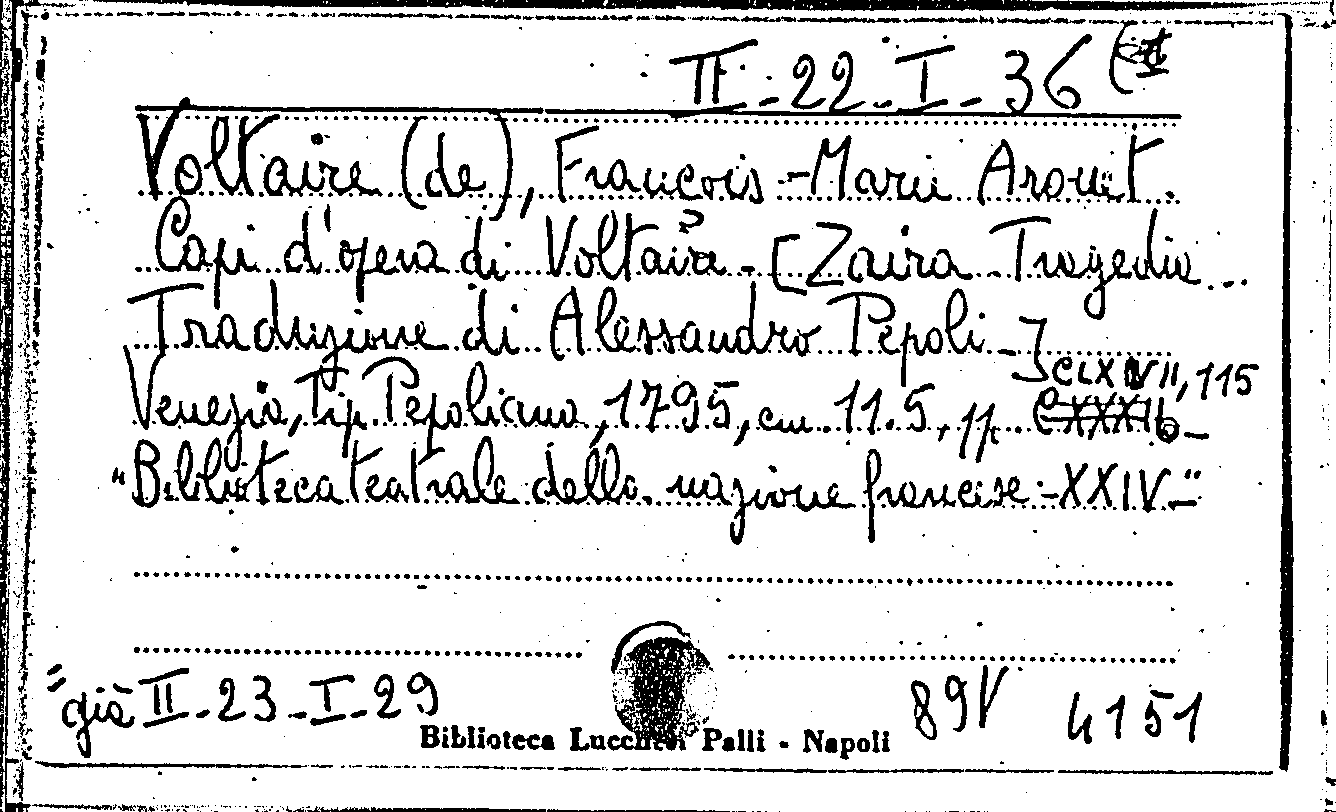 II.-22.-I.-36
Voltaire (de), François-Marie Arouet.
Capi d'opera di Voltaire - [Zaira Tragedia ...
Traduzione di Alessandro Pepoli -]
Venezia, Tip. Pepoliana, 1795, cm. 11.5, pp. CLXIVII, 115
"Biblioteca teatrale della nazione francese - XXIV -"
già II-23-I-29
89V 4151
Biblioteca Lucchesi Palli - Napoli